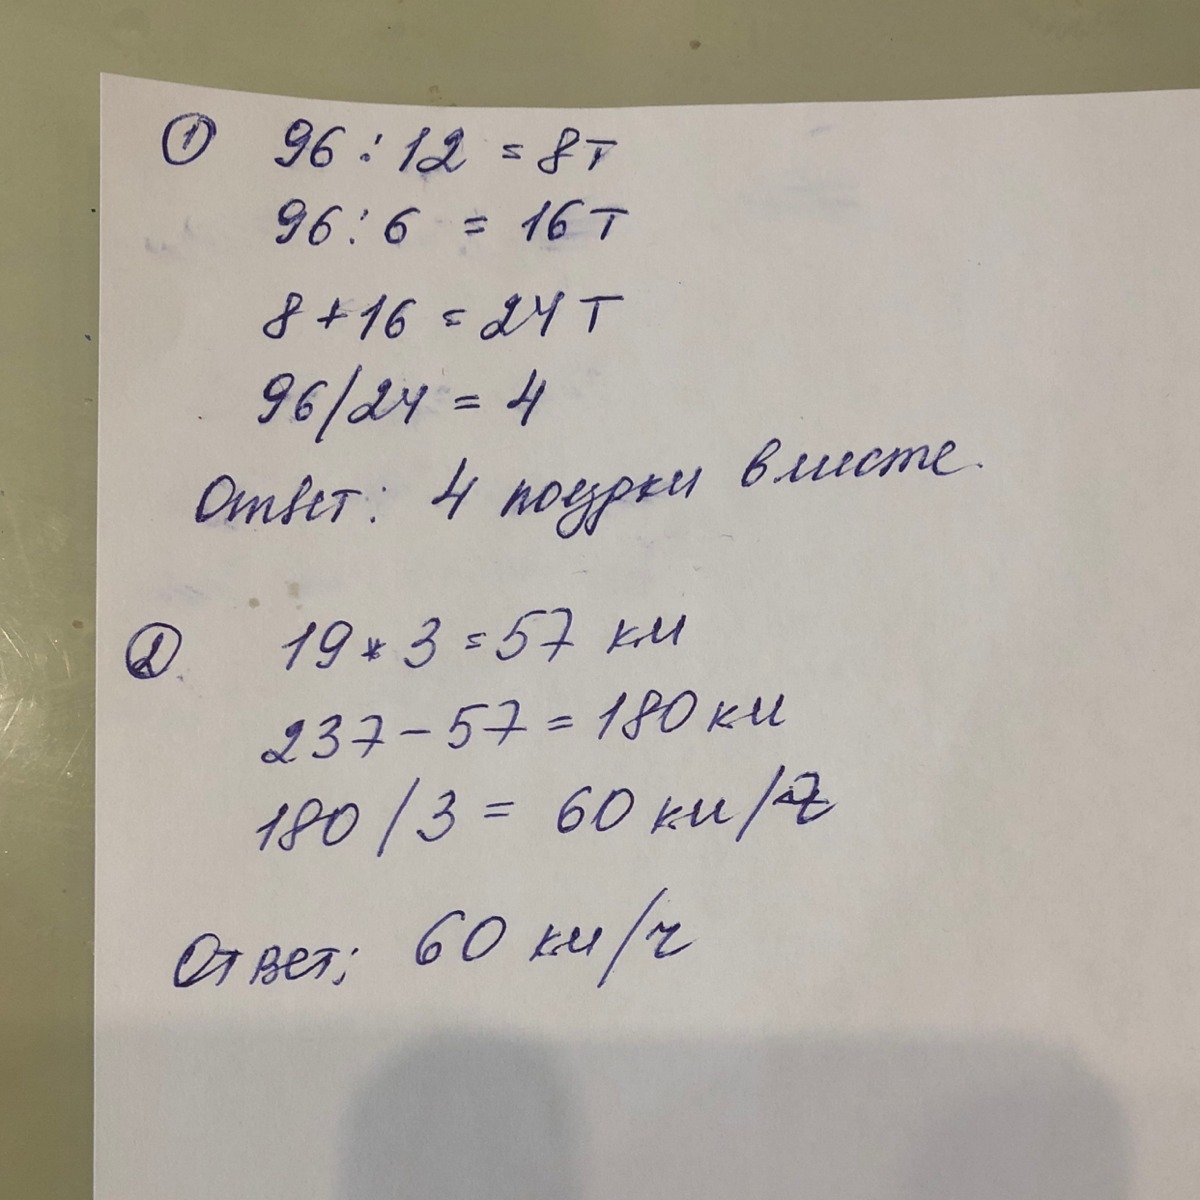 ① 96 : 12 = 8 т
96 : 6 = 16 т
8 + 16 = 24 т
96 / 24 = 4
Ответ: 4 поездки вместе.
② 19 * 3 = 57 км
237 - 57 = 180 км
180 / 3 = 60 км/ч
Ответ: 60 км/ч